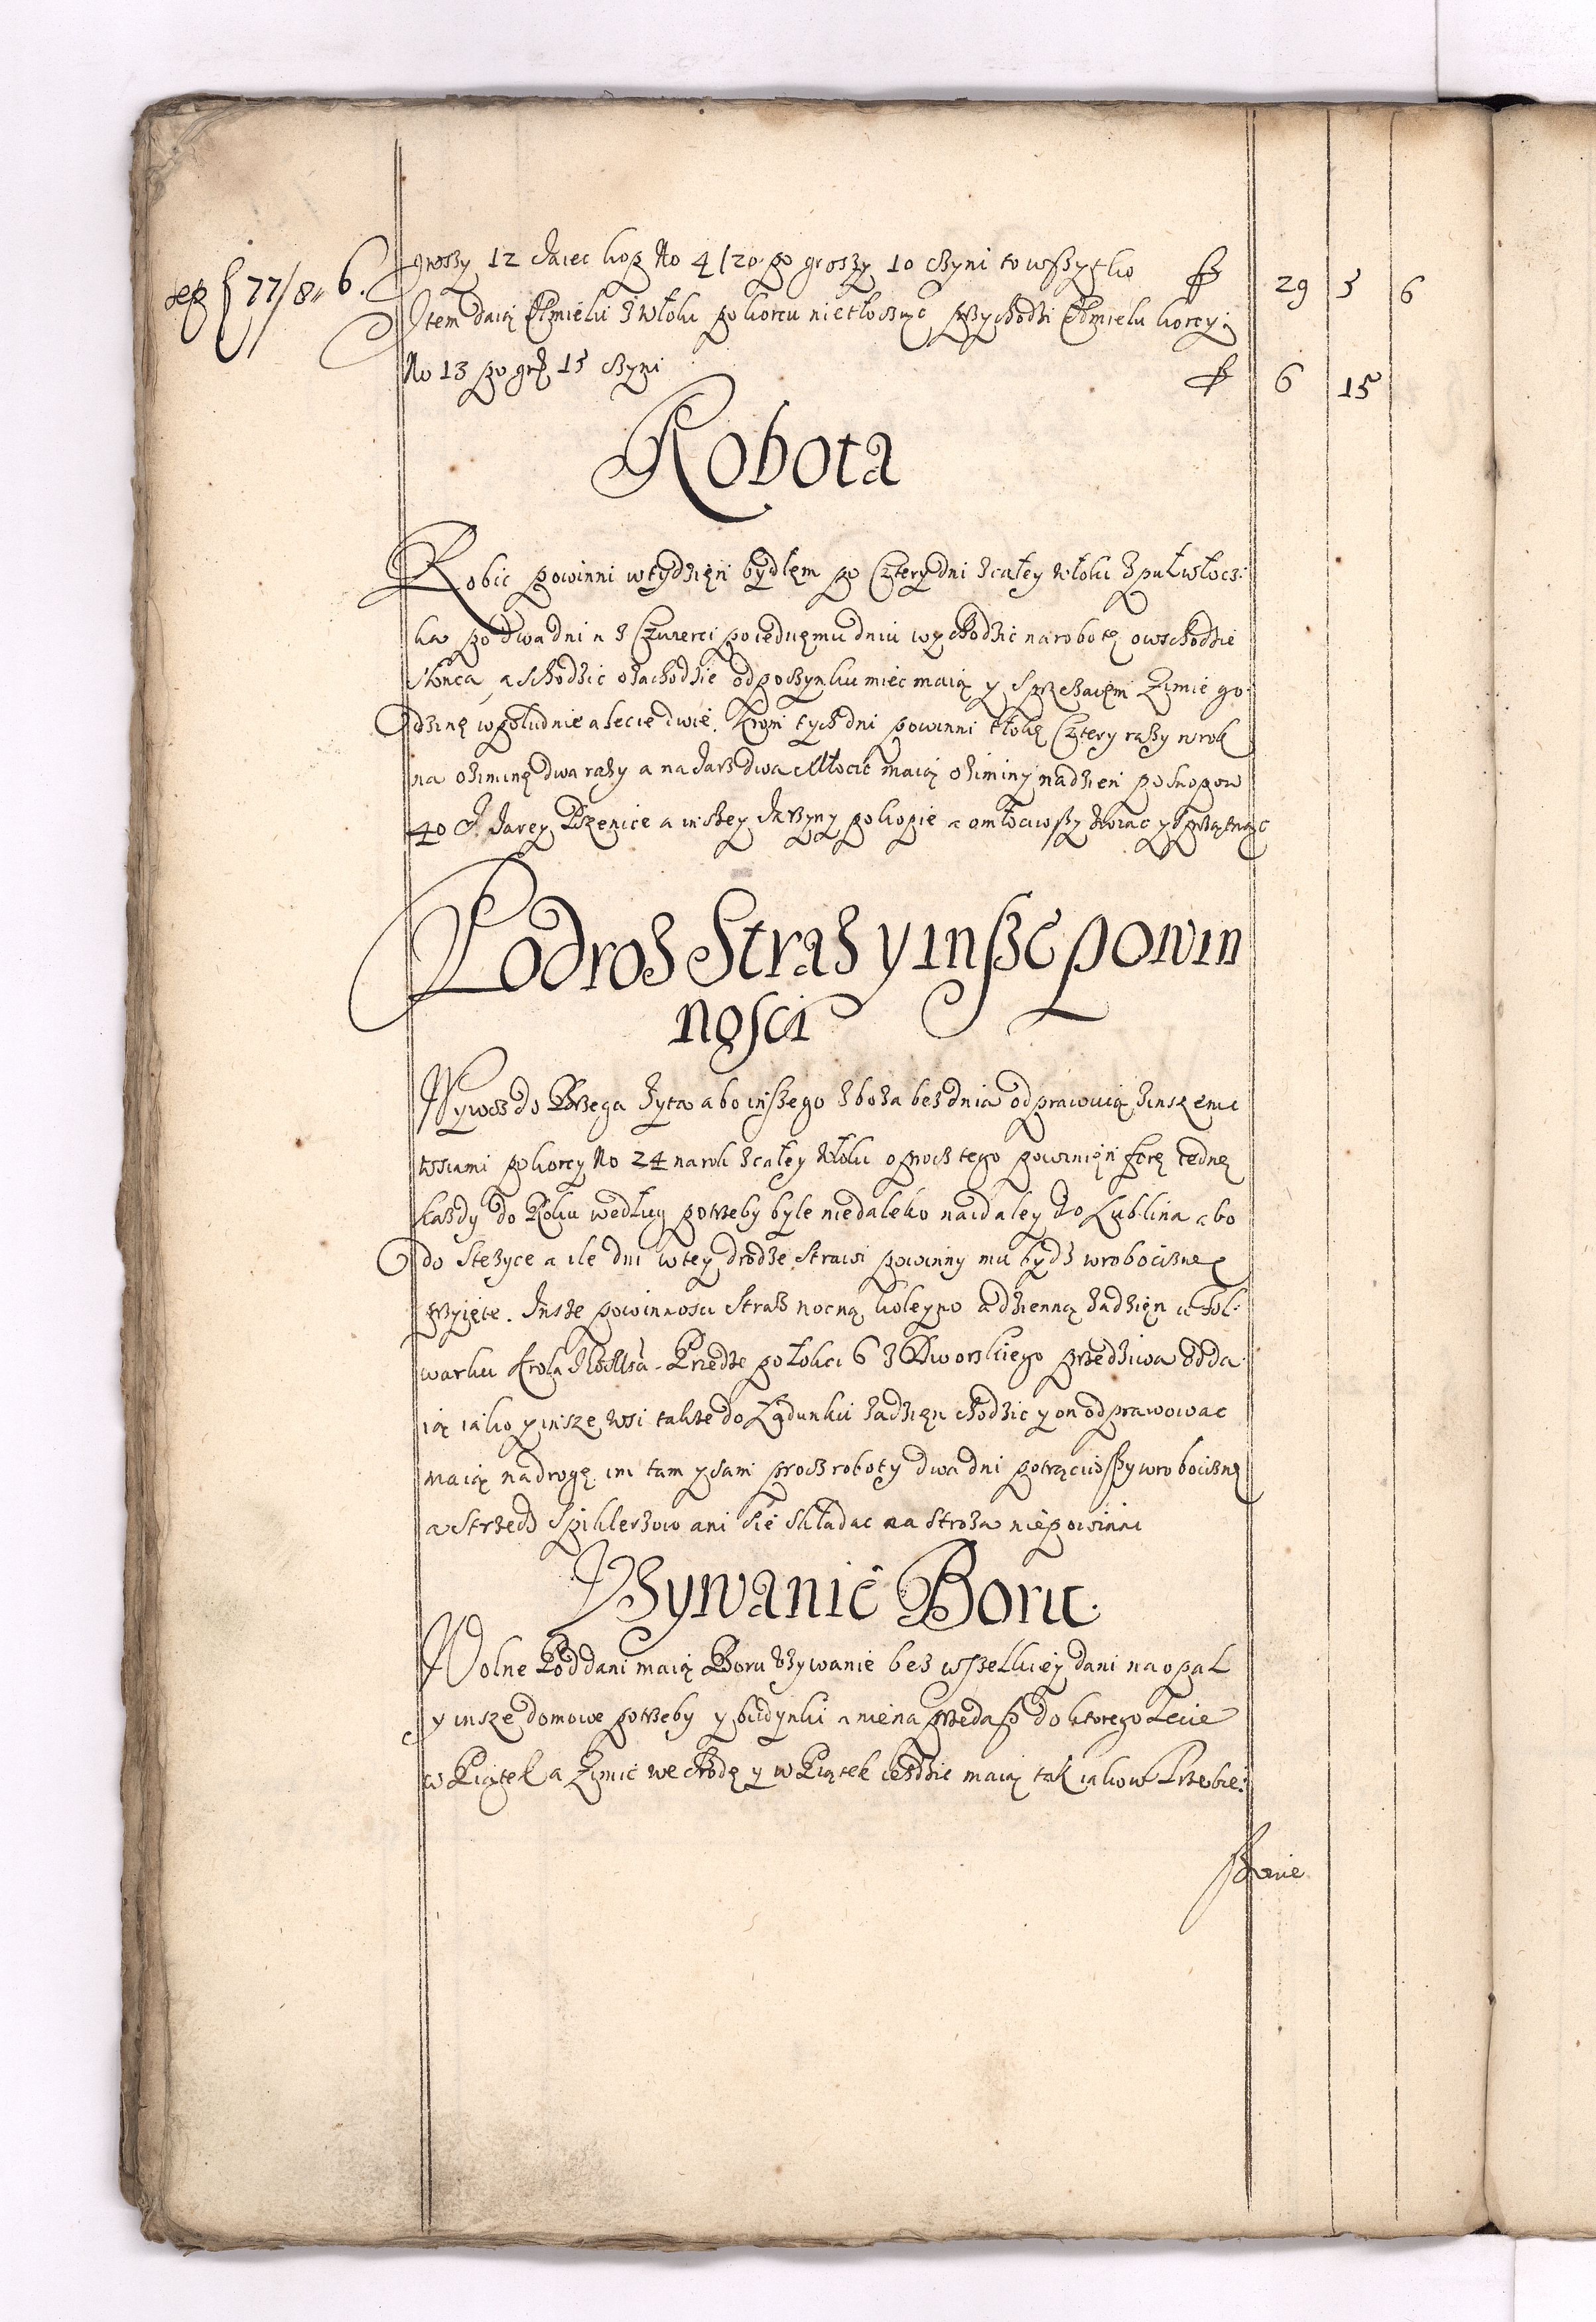 groszy 12 Jaiec kop No 4/20 po groszy 10 czyni to wszytko f 29 5 6
Item daią Chmielu z włoki po korcu nietłocząc przychodzi Chmielu korcy
No 13 po gr 15 czyni f 6 15
Robota
Robic powinni w tydzięn bydlęm po Cztery dni z całey włoki z puł włocz:
ka po dwa dni a z Czwierci po iednęmu dniu wychodzic na robotę o wschodzie
słonca, a schodzic o zachodzie odpoczynku miec maią y Zimie go:
dzinę w południe a lecie dwie. Krom tych dni powinni tłokę Cztery razy w rok
na oziminę dwa razy a na Jarz dwa Młocic maią oziminy na dzien po snopow
40 Jarey Pszenice a inszey Jarzyny po kopie a omłociwszy
Podroz Straz y insze powin
nosci
Wywoz do Brzega Zyta abo inszego zboza bez dnia odprawuią z inszemi
wsiami po korcy No 24 na rok z całey włoki oprocz tego powinięn forę iednę
kazdy do Roku według potrzeby byle niedaleko naidaley do Lublina abo
do Stezyce a ile dni w tey drodze strawi powinny mu bydz w robociznę
przyięte. Insze powinnosci Straz nocną koleyno a dzienną zadzięn w fol:
warku Przedze po łokci 6 z Dworskiego przedziwa odda:
ią iako y insze wsi takze do Ządunku zadzięn chodzic y on odprawowac
maią na drogę im tam y sam procz roboty dwa dni potrąciwszy w robociznę
a strzedz Spiklerzow ani sie składac na stroza niepowinni
Vzywanie Boru.
Wolne Poddani maią Boru Vzywanie bez wszelkiey dani na opał
y insze domowe potrzeby y budynki a nie na przedasz do ktorego Lecie
w Piątek a Zimie we srzodę y w Piątek iezdzic maią tak iako w Przebie: